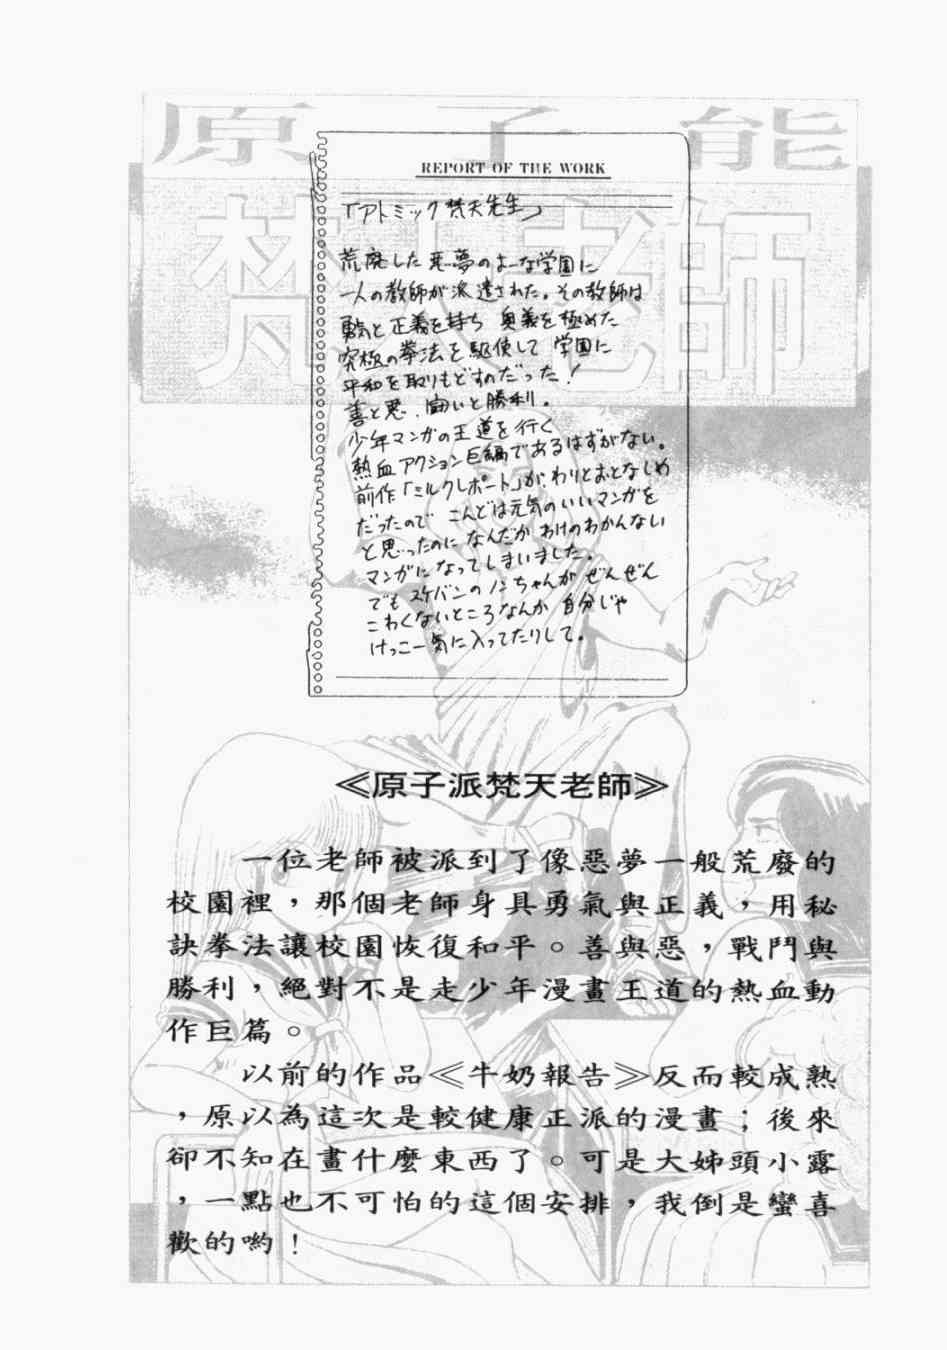 原子能
梵天老師
REPORT OF THE WORK
「アトミック梵天先生」
荒廃した悪夢のよーな学園に
一人の教師が派遣された。その教師は
勇気と正義を持ち 奥義を極めた
究極の拳法を駆使して 学園に
平和を取りもどすのだった!
善と悪、闘いと勝利。
少年マンガの王道を行く
熱血アクション巨編であるはずがない。
前作「ミルクレポート」が、わりとおとなしめ
だったので こんどは元気のいいマンガを
と思ったのになんだかわけのわかんない
マンガになってしまいました。
でもスケバンのノンちゃんがぜんぜん
こわくないところなんか 自分じゃ
けっこー気に入ってたりして。
≪原子派梵天老師≫
一位老師被派到了像惡夢一般荒廢的
校園裡,那個老師身具勇氣與正義,用秘
訣拳法讓校園恢復和平。善與惡,戰鬥與
勝利,絕對不是走少年漫畫王道的熱血動
作巨篇。
以前的作品≪牛奶報告≫反而較成熟
,原以為這次是較健康正派的漫畫;後來
卻不知在畫什麼東西了。可是大姊頭小露
,一點也不可怕的這個安排,我倒是蠻喜
歡的喲!